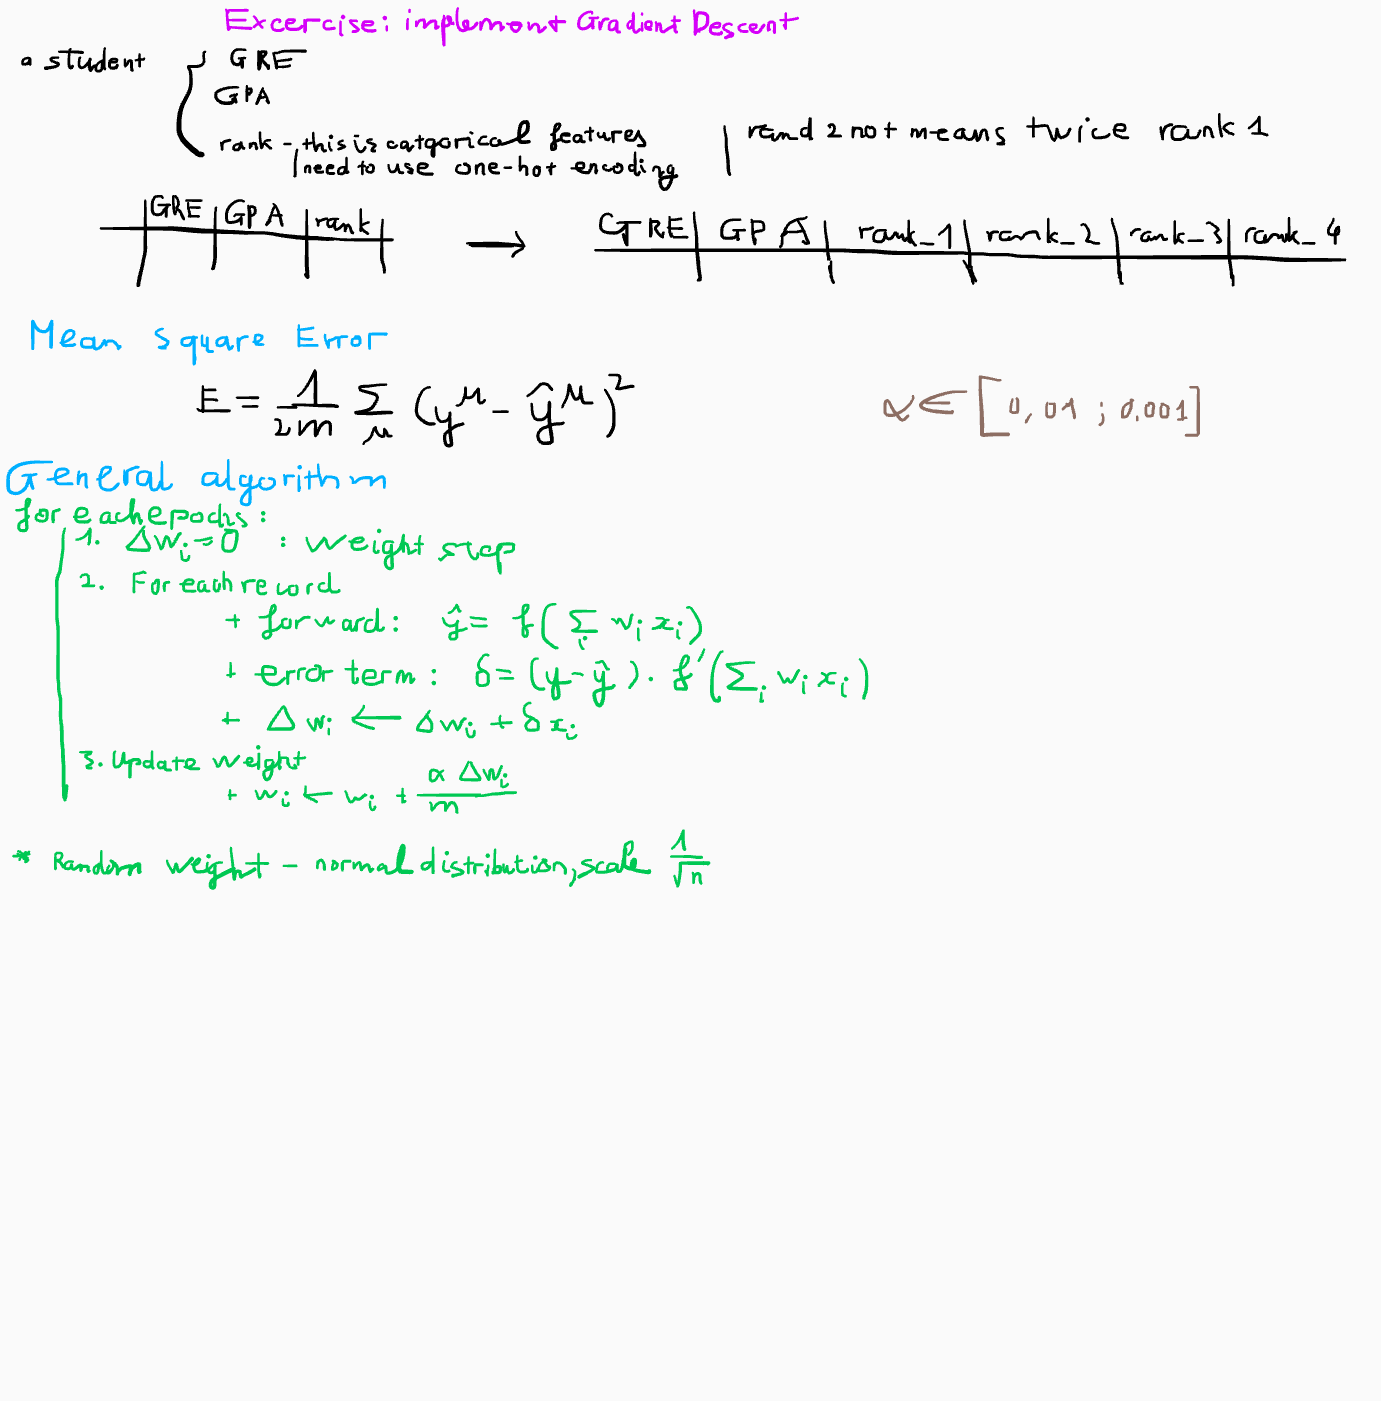 Excercise: implement Gradient Descent
a student { GRE
GPA
rank - this is catgorical features | rand 2 not means twice rank 1
need to use one-hot encoding
GRE | GPA | rank → GRE | GPA | rank_1 | rank_2 | rank_3 | rank_4
Mean Square Error
E = 1/2m Σ_μ (y^μ - ŷ^μ)^2 α ∈ [0,01 ; 0.001]
General algorithm
for each epochs:
1. Δw_i = 0 : weight step
2. For each record
+ forward: ŷ = f(Σ_i w_i x_i)
+ error term: δ = (y - ŷ) . f'(Σ_i w_i x_i)
+ Δw_i ← Δw_i + δx_i
3. Update weight
+ w_i ← w_i + αΔw_i/m
* Random weight - normal distribution, scale 1/√n